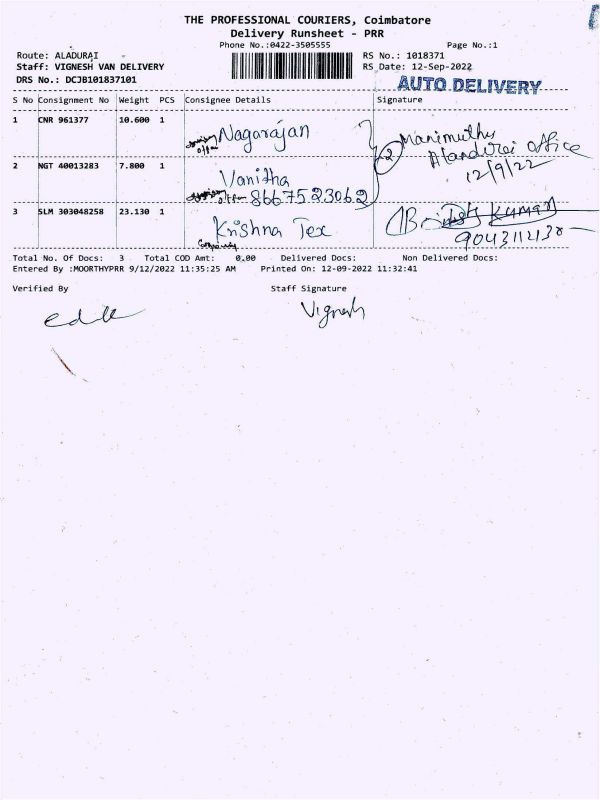 THE PROFESSIONAL COURIERS, Coimbatore
Delivery Runsheet - PRR
Phone No.:0422-3505555 Page No.:1
Route: ALADURAI RS No.: 1018371
Staff: VIGNESH VAN DELIVERY RS Date: 12-Sep-2022
DRS No.: DCJB101837101 AUTO DELIVERY
S No Consignment No Weight PCS Consignee Details Signature
1 CNR 961377 10.600 1 Nagarajan 2 Manimuthu
office Alandurai office
12/9/22
2 NGT 40013283 7.800 1 Vanitha
8667523062
3 SLM 303048258 23.130 1 Krishna Tex Kumar
9043112130
Total No. Of Docs: 3 Total COD Amt: 0.00 Delivered Docs: Non Delivered Docs:
Entered By :MOORTHYPRR 9/12/2022 11:35:25 AM Printed On: 12-09-2022 11:32:41
Verified By Staff Signature
Vignesh